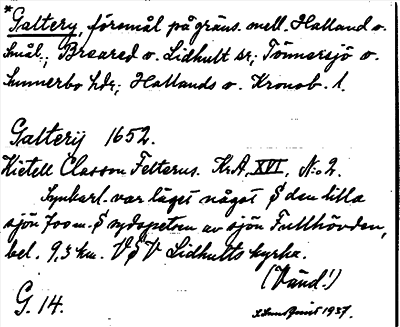 *Galtery, föremål på gräns. mell. Halland o.
Smål.; Breared o. Lidhult sr; Tönnersjö o.
Sunnerbo hdr; Hallands o. Kronob. l.
Galterÿ 1652.
Kietell Classon Felterus. Kr.A. XVI, N:o 2.
Synbarl. var läget något S den lilla
sjön 700 m. S sydspetsen av sjön Fullhövden,
bel. 9,3 km. VSV Lidhults kyrka.
(Vänd!)
G. 14.
1937.